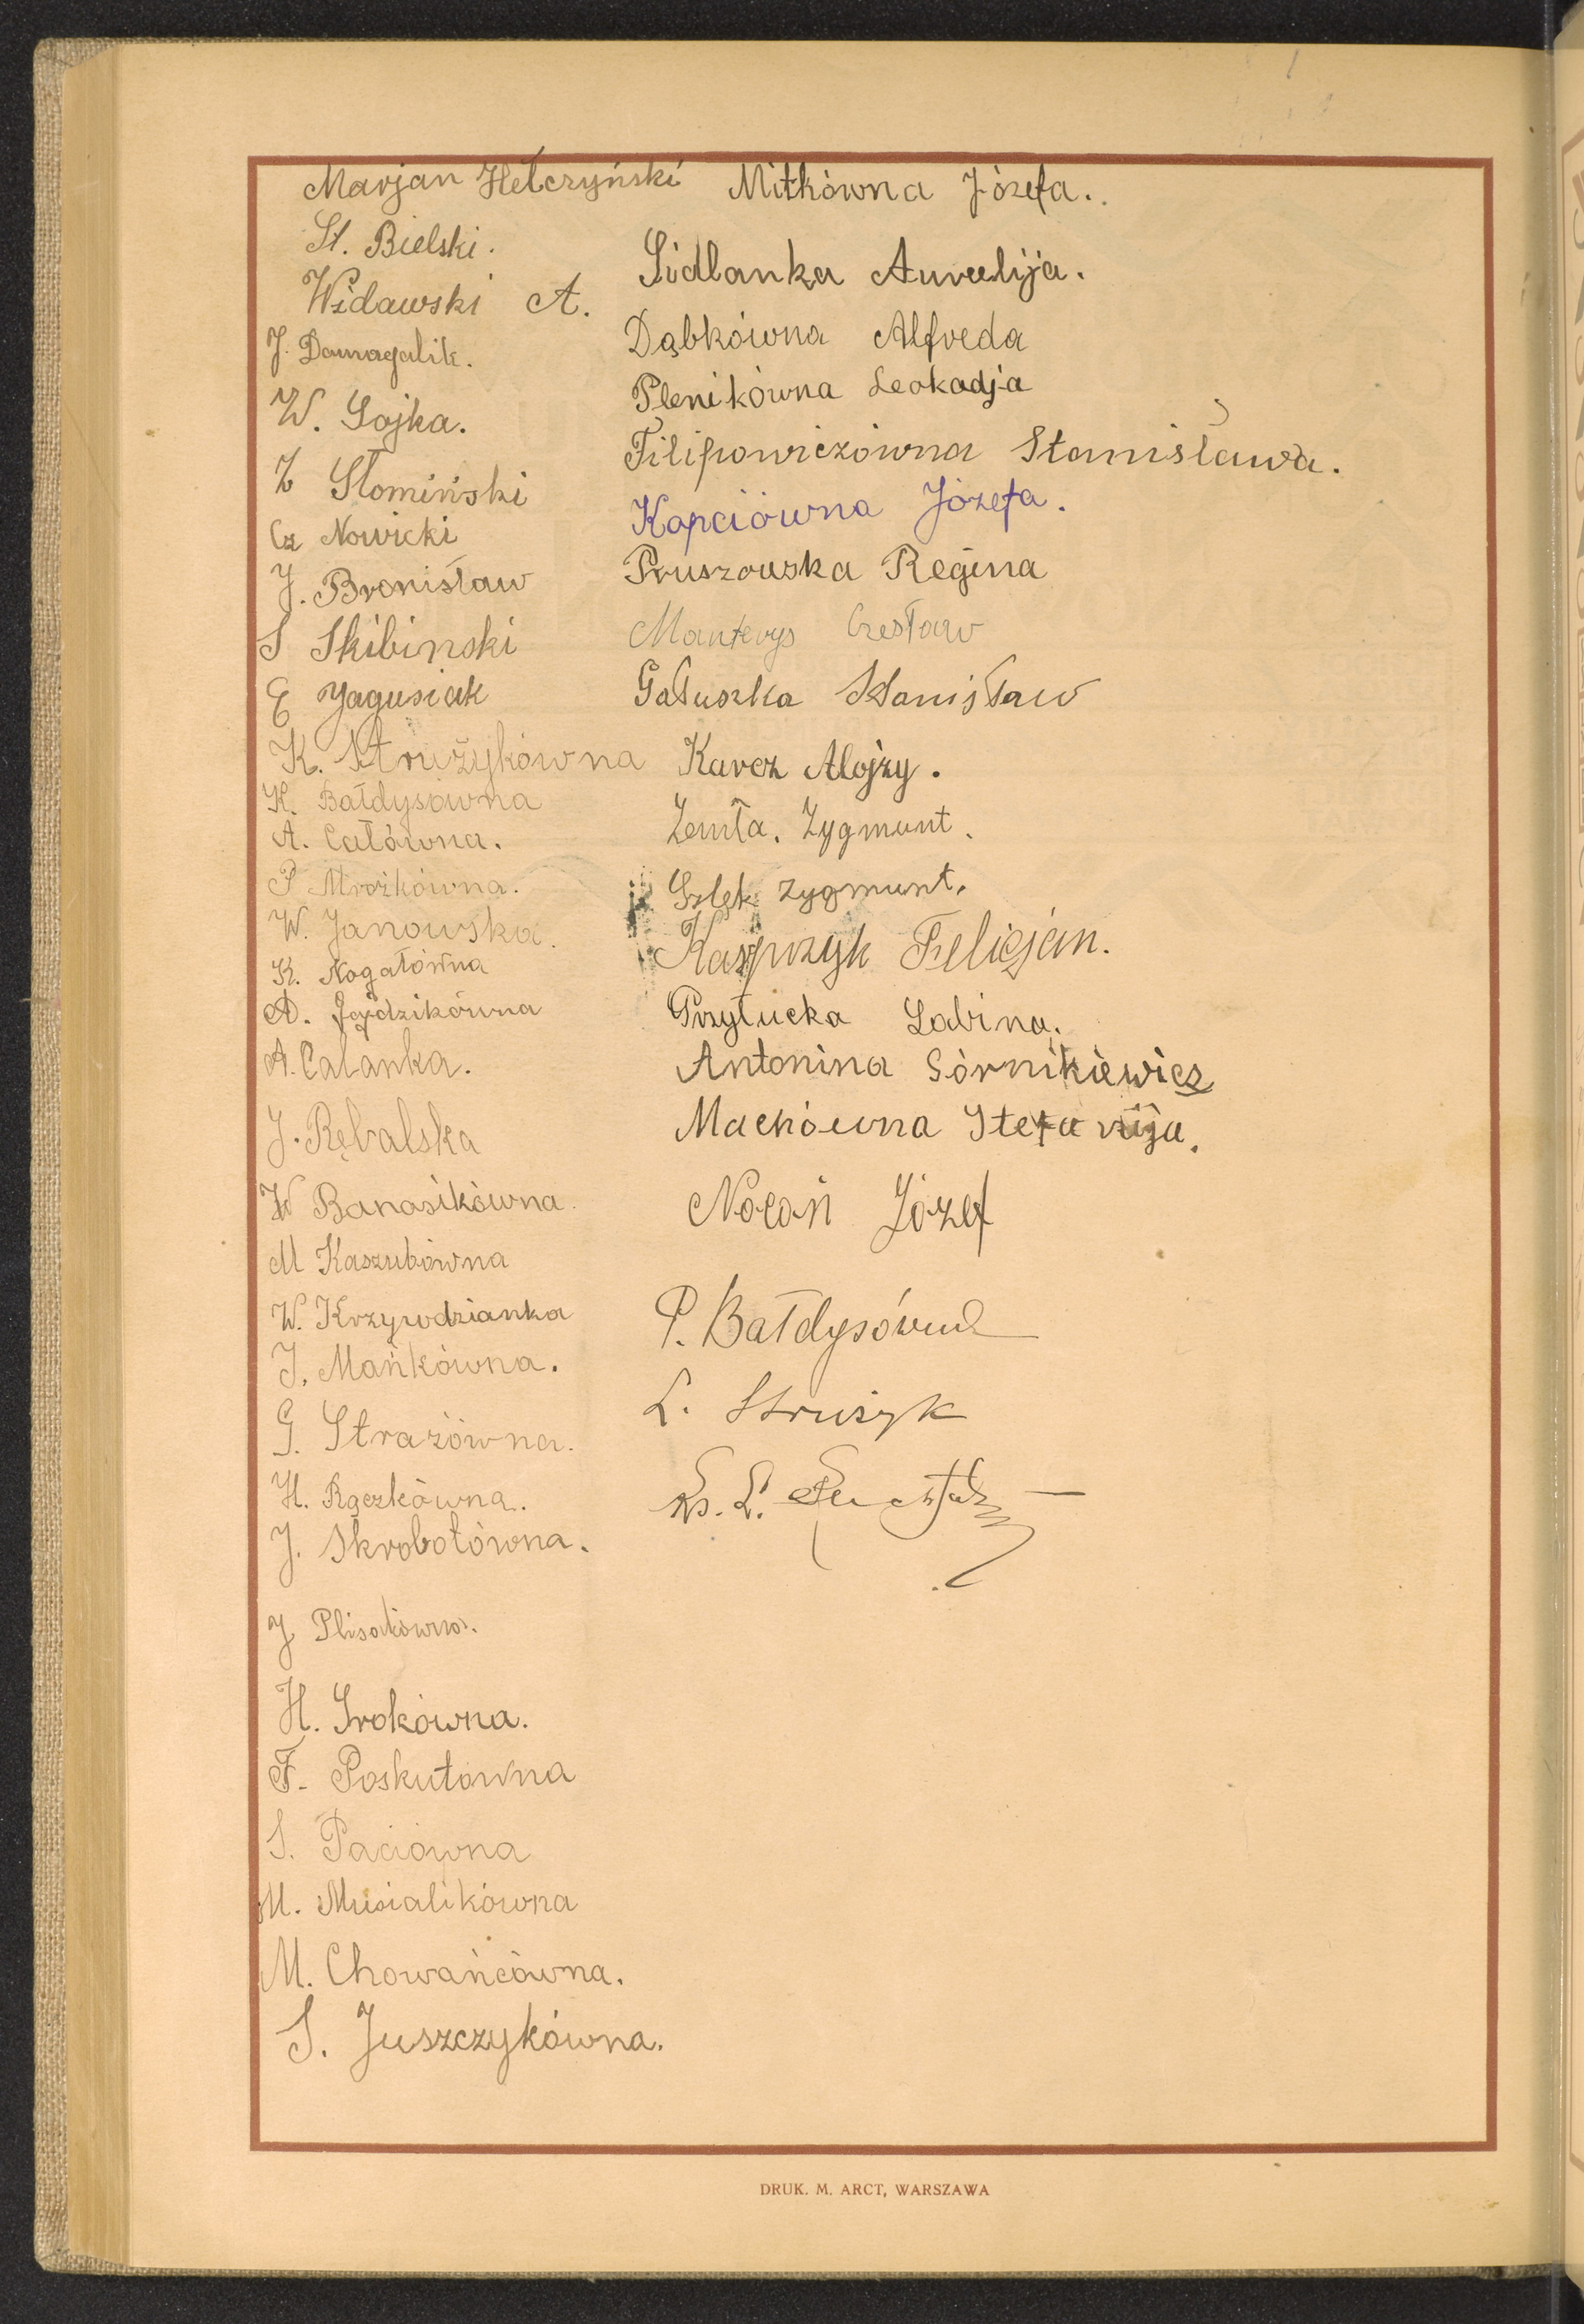 Marjan Helczyński
St. Bielski.
Widawski A.
J. Damagalik.
W. Sojka.
Z Słomiński
Cz Nowicki
J. Bronisław
S Skibinski
E Jagusiak
K. Strużykówna
H. Bałdysówna
A. Całówna.
P Mrożkówna.
W. Janowska.
K. Nogatówna
A. Gajdzikówna
A. Calanka.
J. Rębalska
W Banasikówna.
M Kaszubówna
W. Krzywdzianka
J. Mańkówna.
G. Strażówna.
H. Rączkówna.
J. Skrobotówna.
J Plisakówna.
H. Srokówna.
F. Poskutówna
S. Paciówna
M. Musialikówna
M. Chowańcówna.
S. Juszczykówna.
Mitkówna Józefa.
Sidlanka Aurelija.
Dąbkówna Alfreda
Plenikówna Leokadja
Filipowiczówna Stanisława.
Kapciówna Józefa.
Pruszowska Regina
Manterys Czesław
Gałuszka Stanisław
Karcz Alojzy.
Zemła. Zygmunt.
Szlęk Zygmunt.
Kasprzyk Felicjan.
Przyłucka Sabina.
Antonina Górnikiewicz
Machówna Stefanija.
Nocoń Józef
P. Bałdysówna
L. Strużyk
Ks. L.
DRUK. M. ARCT, WARSZAWA